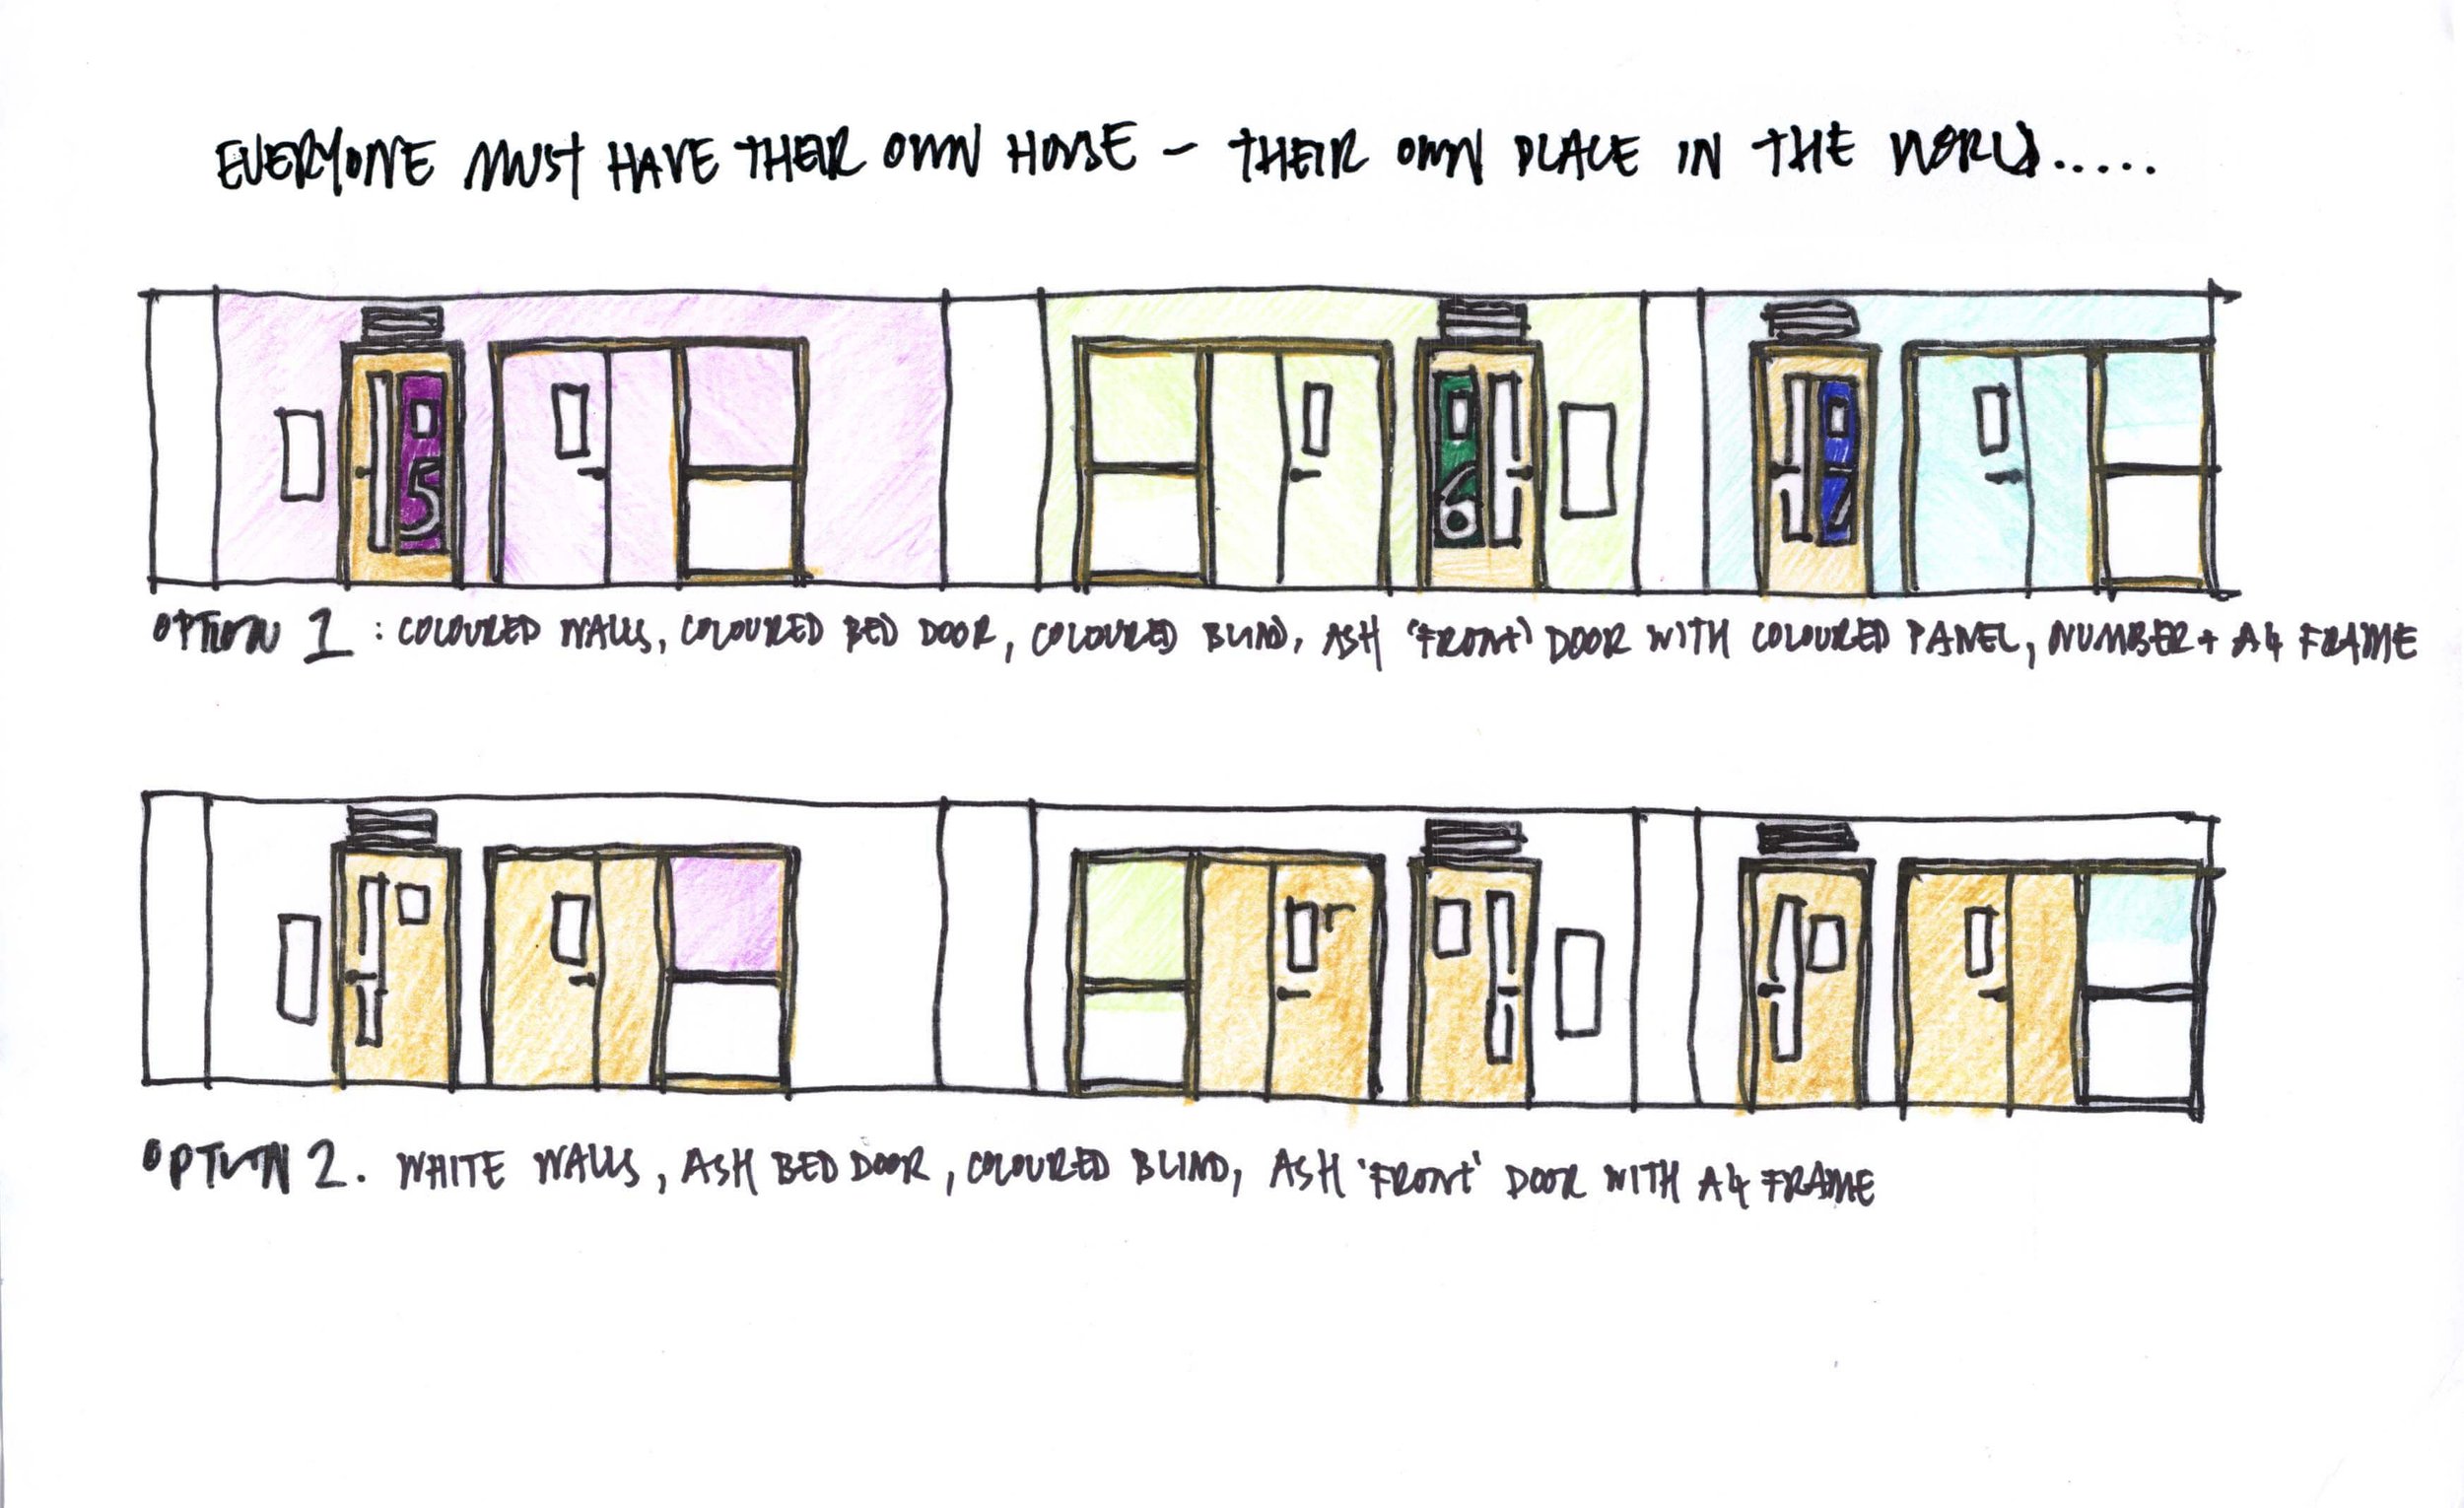 EVERYONE MUST HAVE THEIR OWN HOUSE - THEIR OWN PLACE IN THE WORLD.....
5 6 7
OPTION 1 : COLOURED WALLS, COLOURED BED DOOR, COLOURED BLIND, ASH 'FRONT' DOOR WITH COLOURED PANEL, NUMBER + A4 FRAME
OPTION 2. WHITE WALLS, ASH BED DOOR, COLOURED BLIND, ASH 'FRONT' DOOR WITH A4 FRAME